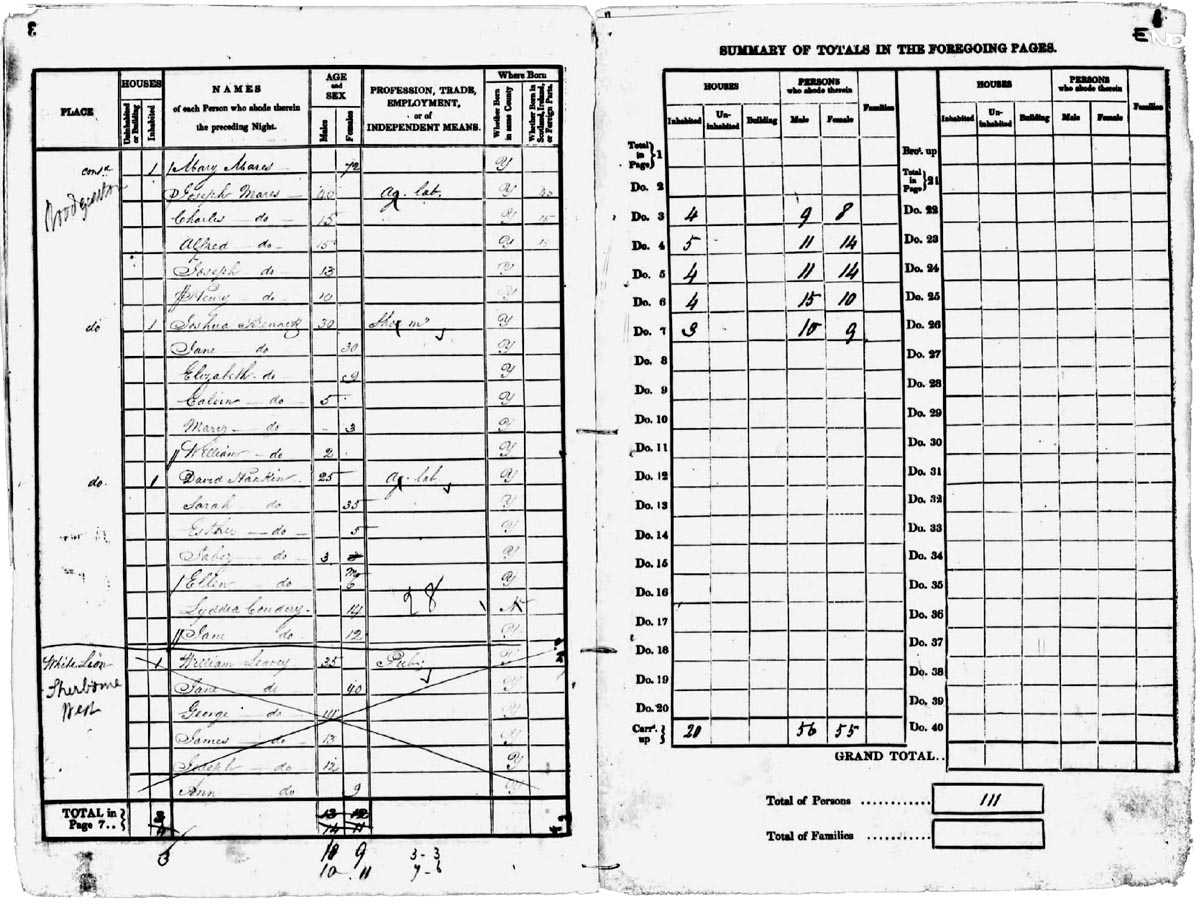 3
PLACE
HOUSES
Uninhabited or Building
Inhabited
NAMES
of each Person who abode therein
the preceding Night.
AGE
and
SEX
Males
Females
PROFESSION, TRADE,
EMPLOYMENT,
or of
INDEPENDENT MEANS.
Where Born
Whether Born in same County
Whether Born in Scotland, Ireland, or Foreign Parts.
1 Mary Mares 72 Y
Joseph Mares 40 Ag. lab. Y
Charles do 15 Y
Alfred do 15 Y
Joseph do 13 Y
Henry do 10 Y
do 1 Joshua 30 Shoe m Y
Jane do 30 Y
Elizabeth do 9 Y
Calvin do 5 Y
do 3 Y
William do 2 Y
do. 1 David Hankin 25 Ag. lab Y
Sarah do 35 Y
Esther do 5 Y
Jabez do 3 Y
Ellen do 6 Y
Lyddia 14 N
28
Jane do 12 Y
White Lion 1 William 35 Y
Sherborne
West
Jane do 40 Y
George do
James do 13 Y
Joseph do 12 Y
Ann do 9 Y
TOTAL in
Page 7..
3
10 9 3-3
10 - 11 7-6
SUMMARY OF TOTALS IN THE FOREGOING PAGES.
HOUSES
PERSONS
who abode therein
Families
Inhabited
Un-
inhabited
Building
Male
Female
Total in Page 1
Do. 2
Do. 3 4 9 8
Do. 4 5 11 14
Do. 5 4 11 14
Do. 6 4 15 10
Do. 7 3 10 9
Do. 8
Do. 9
Do. 10
Do. 11
Do. 12
Do. 13
Do. 14
Do. 15
Do. 16
Do. 17
Do. 18
Do. 19
Do. 20
Carrd. up 20 56 55
HOUSES
PERSONS
who abode therein
Families
Inhabited
Un-
inhabited
Building
Male
Female
Brot. up
Total in Page 21
Do. 22
Do. 23
Do. 24
Do. 25
Do. 26
Do. 27
Do. 28
Do. 29
Do. 30
Do. 31
Do. 32
Do. 33
Do. 34
Do. 35
Do. 36
Do. 37
Do. 38
Do. 39
Do. 40
GRAND TOTAL..
Total of Persons ............ 111
Total of Families ............